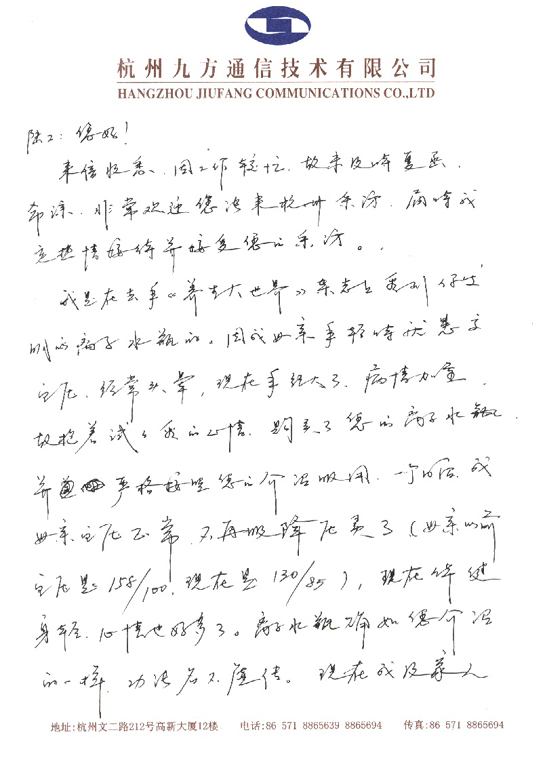 杭州九方通信技术有限公司
HANGZHOU JIUFANG COMMUNICATIONS CO.,LTD
陈工：您好！
来信收悉、因工作较忙、故未及时复函、
希谅、非常欢迎您决来杭州采访、届时我
定热情接待并接受您的采访。
我是在去年《养生大世界》杂志上看到
明的离子水瓶的。因我母亲年轻时就患高
血压、经常头晕，现在年纪大了、病情加重、
故抱着试试看的心情、购买了您的离子水瓶、
并严格按照您的介绍服用、一个月后、我
母亲血压正常、不再服降压灵了（母亲以前
血压是158/100、现在是130/85），现在体健
身轻、心情也好多了。离子水瓶确如您介绍
的一样、功法名不虚传。现在我及家人
地址:杭州文二路212号高新大厦12楼 电话:86 571 8865639 8865694 传真:86 571 8865694